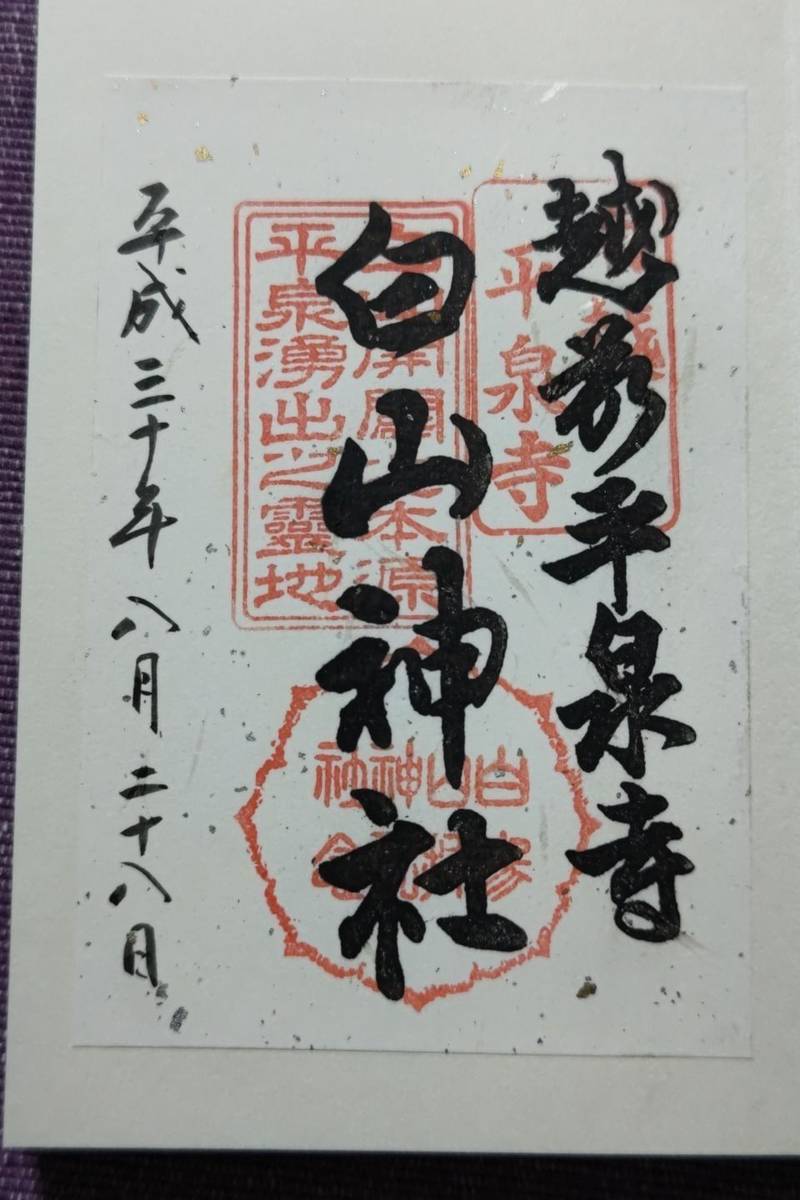 越前平泉寺
平泉寺
白山神社
開闢 本源
平泉湧出之靈地
白山神社
平成三十年 八月二十八日